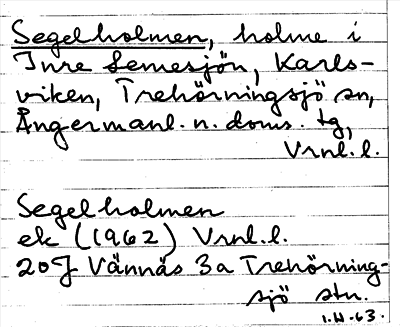 Segelholmen, holme i
Inre Lemesjön, Karls-
viken, Trehörningsjö sn,
Ångermanl. n. doms. tg,
Vrnl.l.
Segelholmen
ek (1962) Vrnl.l.
20J Vännäs 3a Trehörning-
sjö stn.
1.H.63.